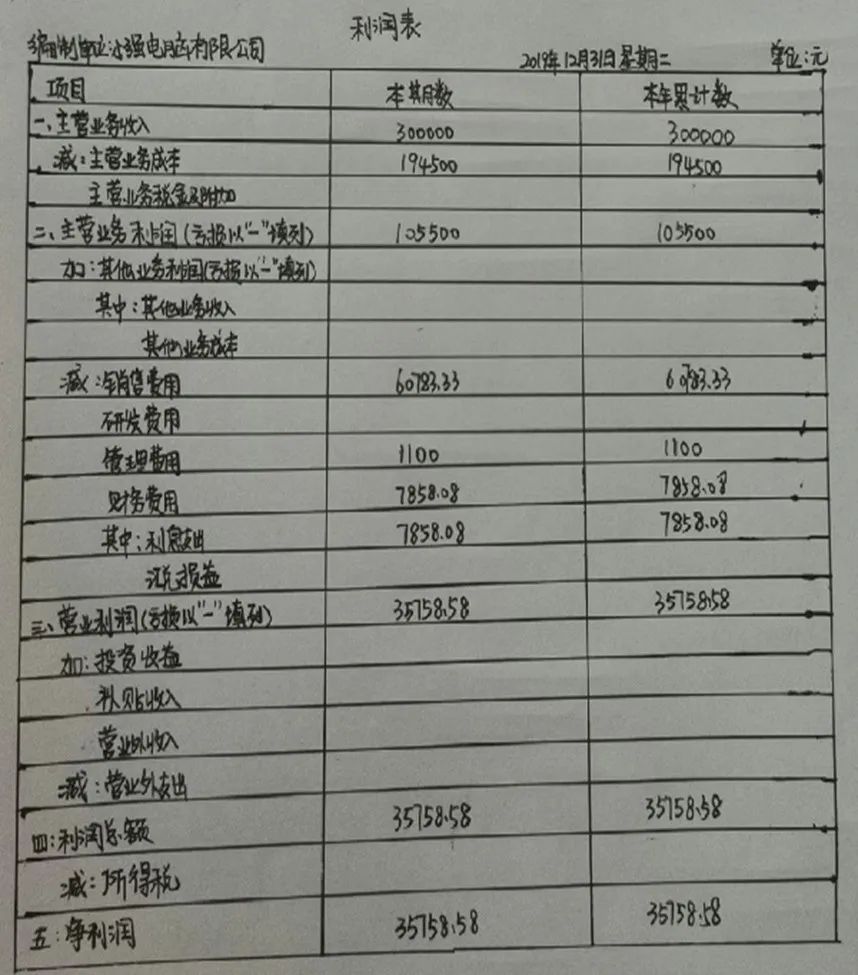 利润表
编制单位:小强电脑有限公司 2019年12月31日星期二 单位:元
项目 本期数 本年累计数
一、主营业务收入 300000 300000
减:主营业务成本 194500 194500
主营业务税金及附加
二、主营业务利润(亏损以"-"填列) 105500 105500
加:其他业务利润(亏损以"-"填列)
其中:其他业务收入
其他业务成本
减:销售费用 60783.33 60783.33
研发费用
管理费用 1100 1100
财务费用 7858.08 7858.08
其中:利息支出 7858.08 7858.08
汇兑损益
三、营业利润(亏损以"-"填列) 35758.58 35758.58
加:投资收益
补贴收入
营业外收入
减:营业外支出
四:利润总额 35758.58 35758.58
减:所得税
五:净利润 35758.58 35758.58